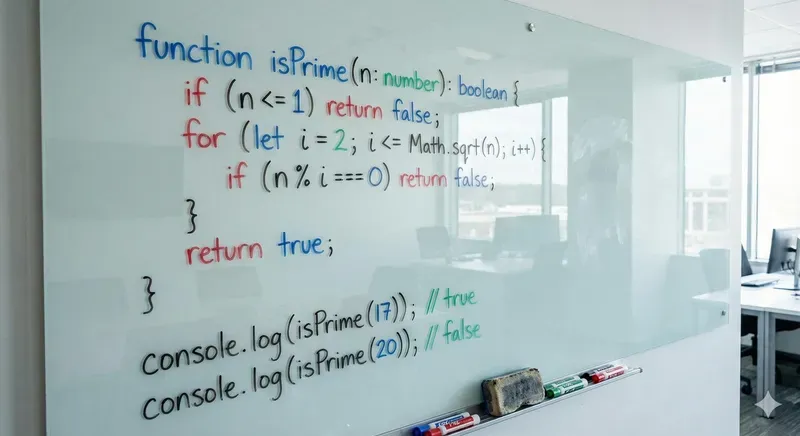 function isPrime(n: number): boolean {
if (n <= 1) return false;
for (let i = 2; i <= Math.sqrt(n); i++) {
if (n % i === 0) return false;
}
return true;
}
console.log(isPrime(17)); // true
console.log(isPrime(20)); // false